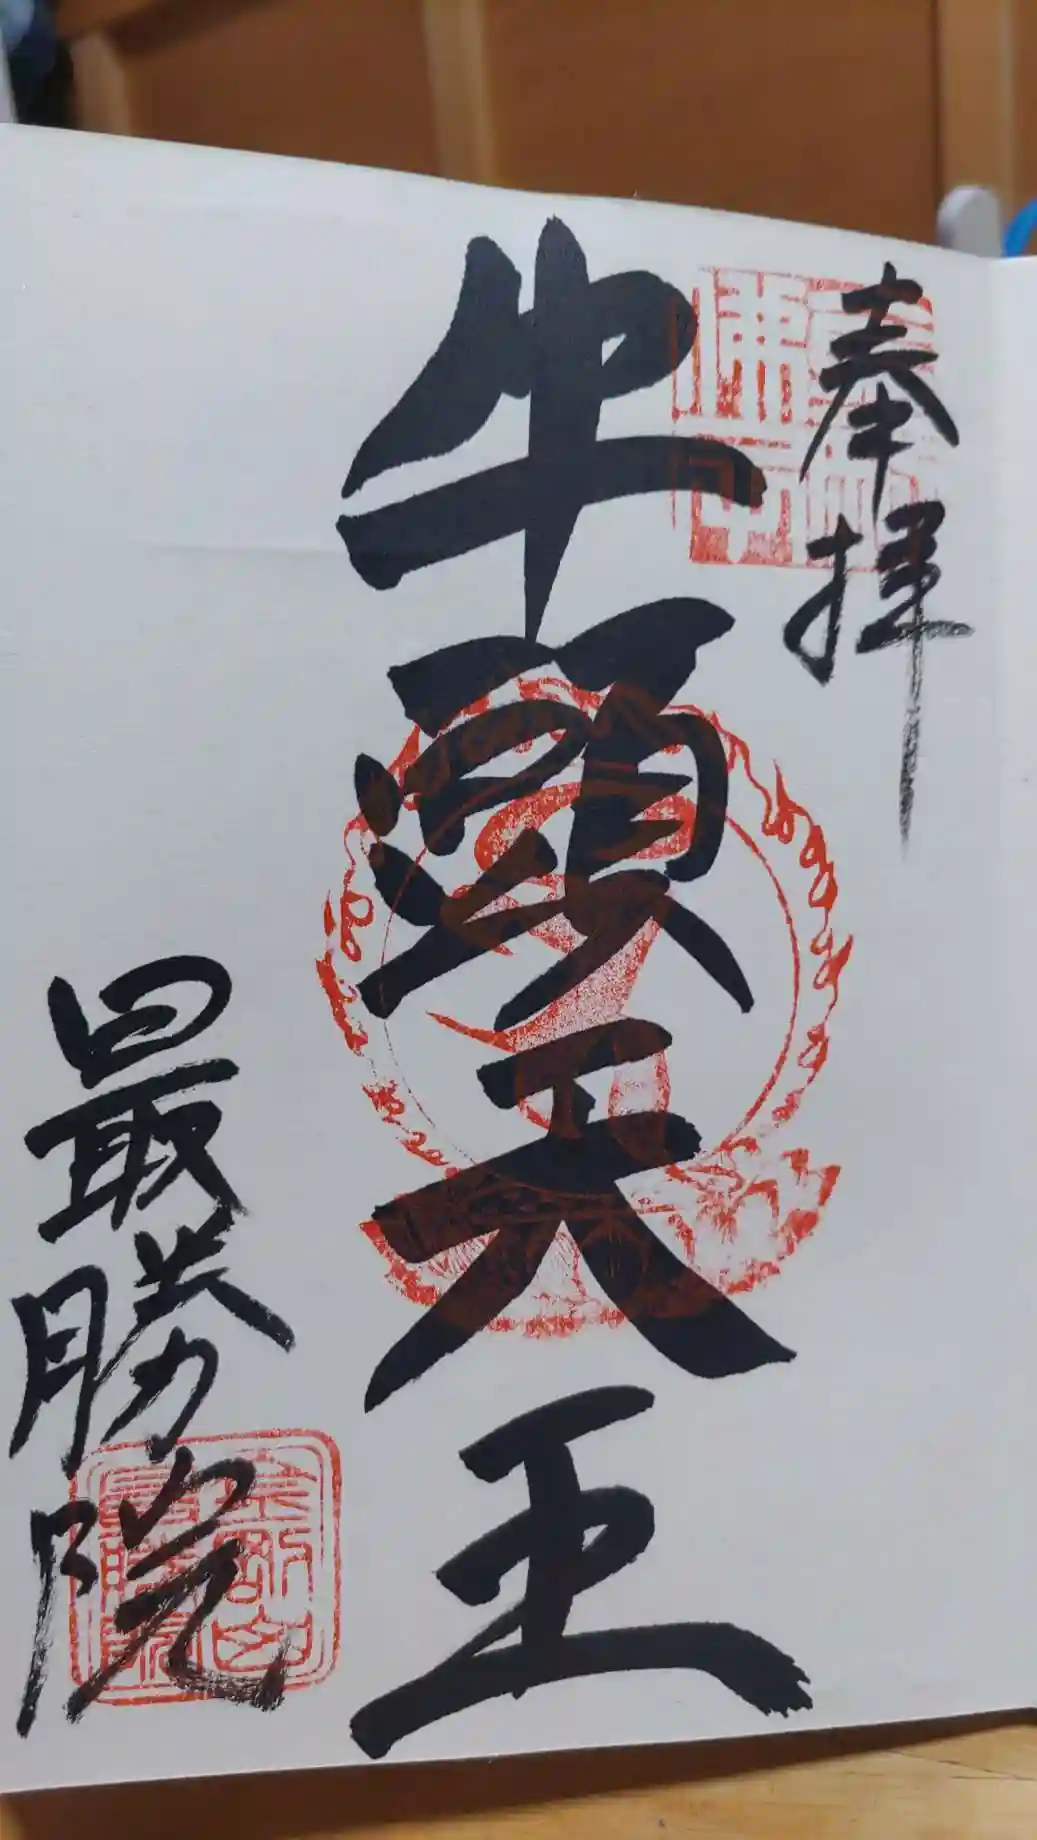 奉拝
牛頭天王
最勝院